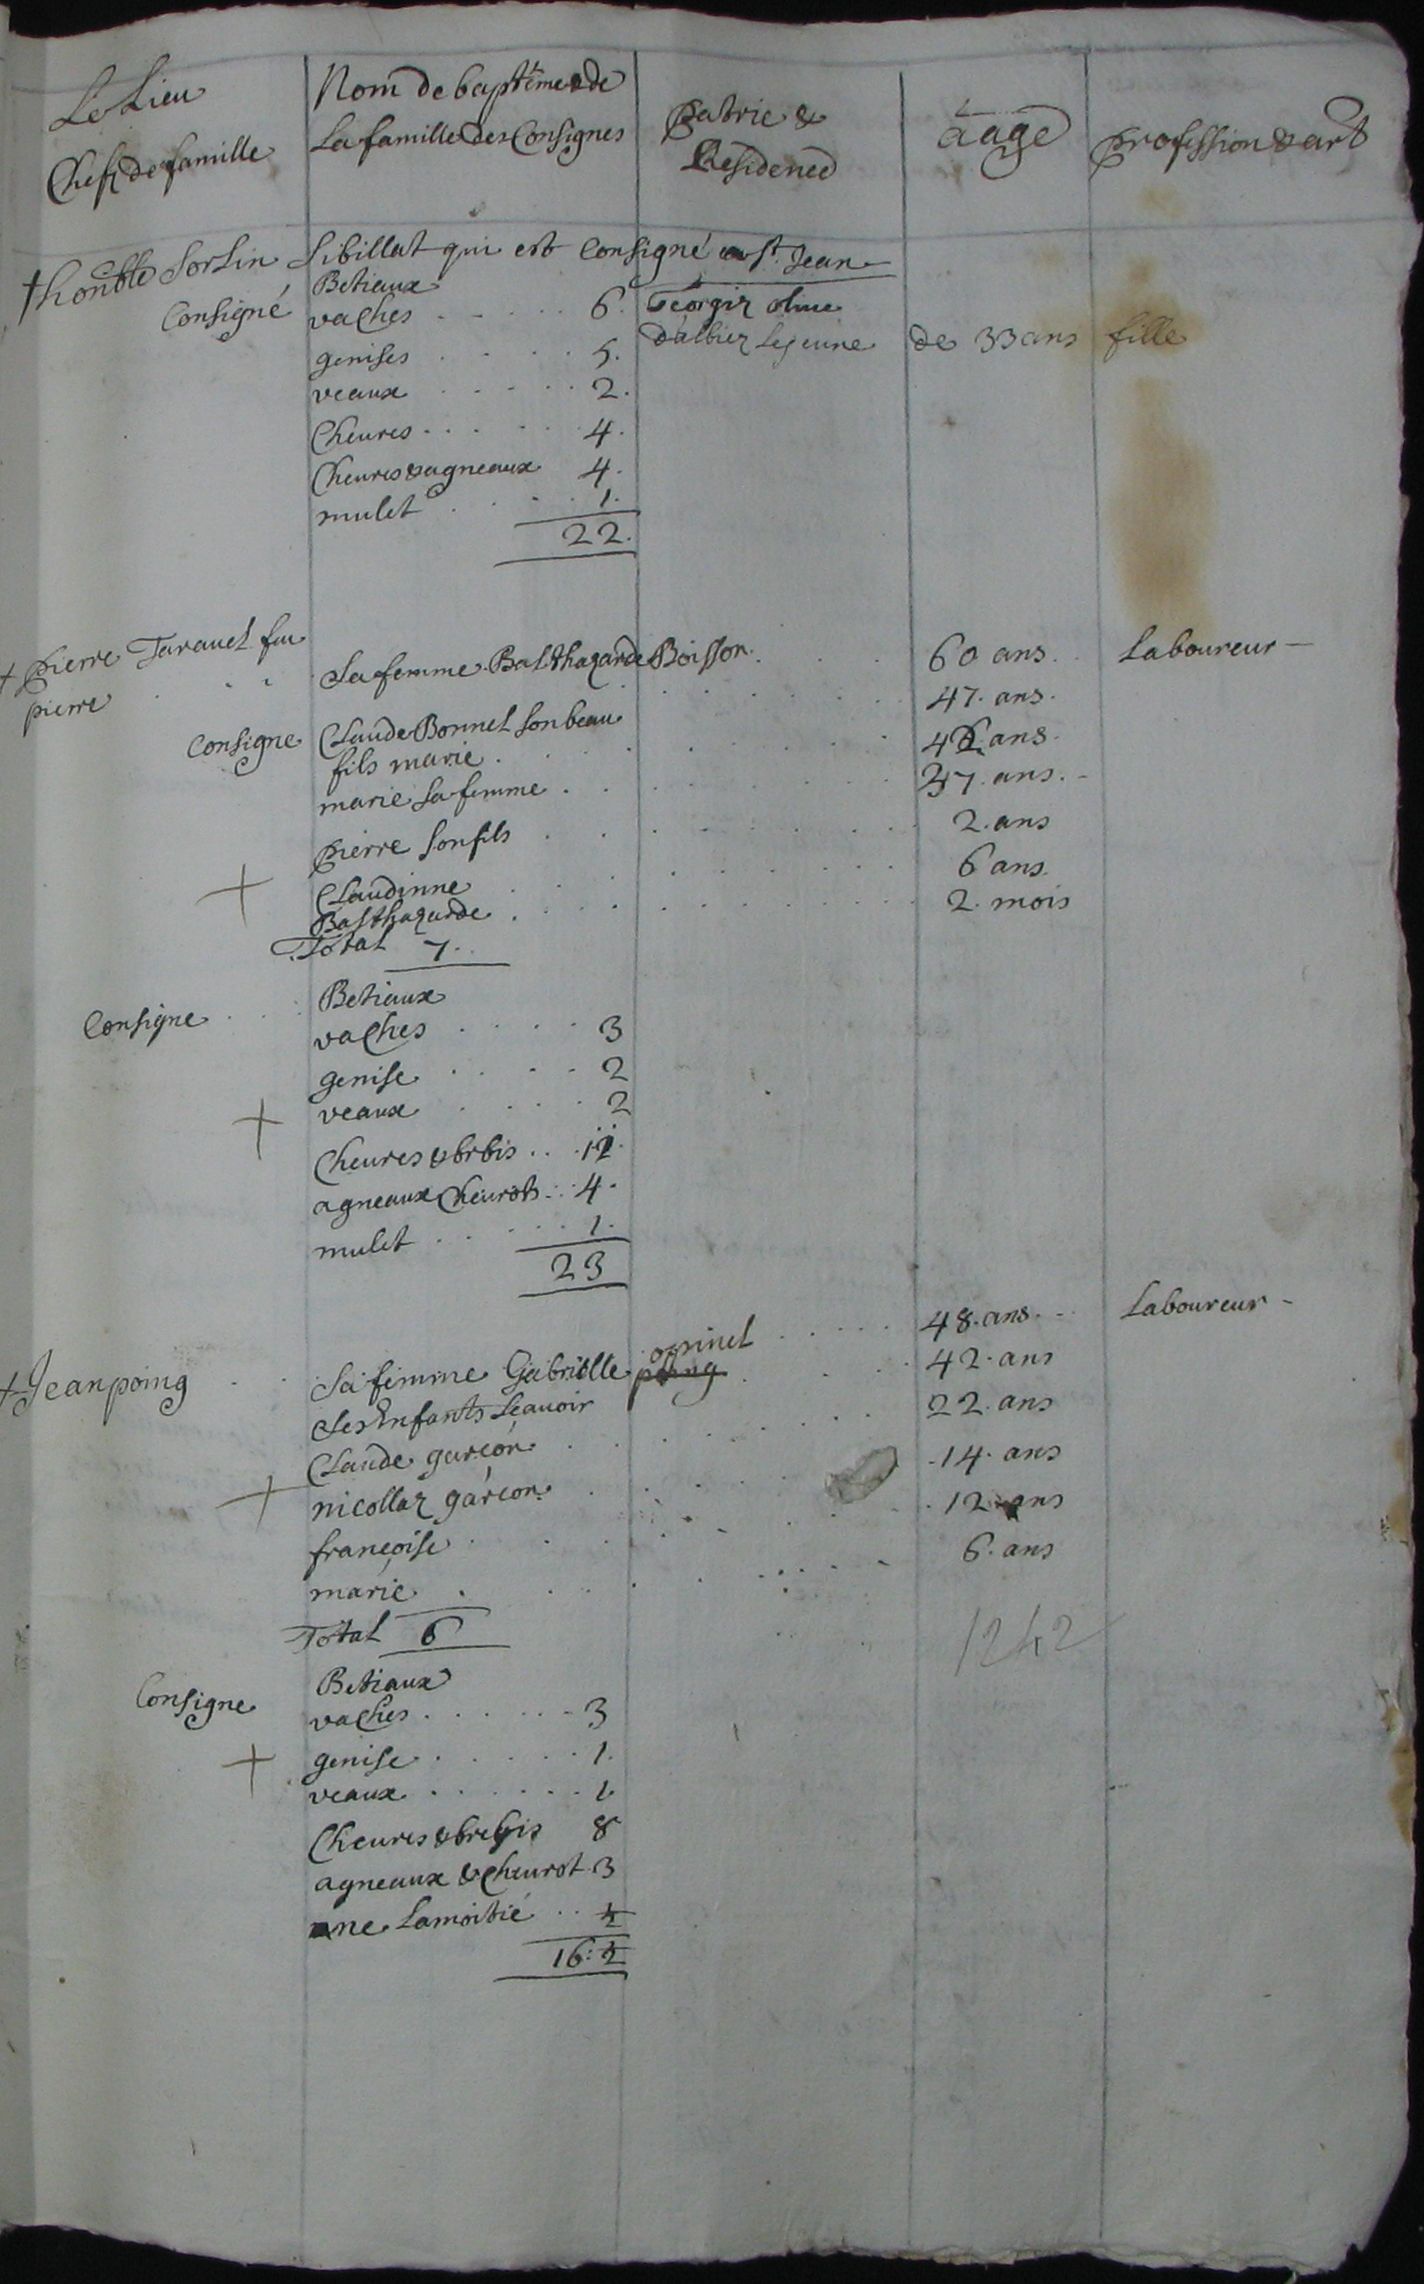 Le Lieu
Chefz de famille
Nom de baptême & de
La famille des Consignes
patrie &
Residence
aage
profession & art
+ honble Sorlin Sibillat qui est Consigné a St Jean
Consigné
Betiaux
vaches 6.
genises 5.
veaux 2.
Cheures 4.
Cheures & agneaux 4.
mulet 1.
22.
d'albiez Le jeune de 33 ans fille
+ pierre Tarauel feu
pierre
60 ans Laboureur
Sa femme Balthazarde Boisson 47. ans
Consigne Claude Bonnel Son beau
fils marie ans
marie Sa femme 37. ans.
pierre Son fils 2. ans
+ Claudinne 6 ans
Basthazarde 2. mois
Total 7.
Consigne Betiaux
vaches 3
genise 2
+ veaux 2
Cheures & brbis
agneaux Cheurots 4.
mulet 1.
23
+ Jean poing 48. ans Laboureur
Sa femme Gabrielle poing 42. ans
Ses Enfants Scauoir
Claude garcon 22. ans
+ nicollaz garcon 14. ans
francoise 12 ans
marie 6. ans
Total 6
1242
Consigne Betiaux
vaches 3
+ genise 1.
veaux 1.
Cheures & brebis 8
agneaux & Cheurot 3
ane Lamoitié ½
16: ½